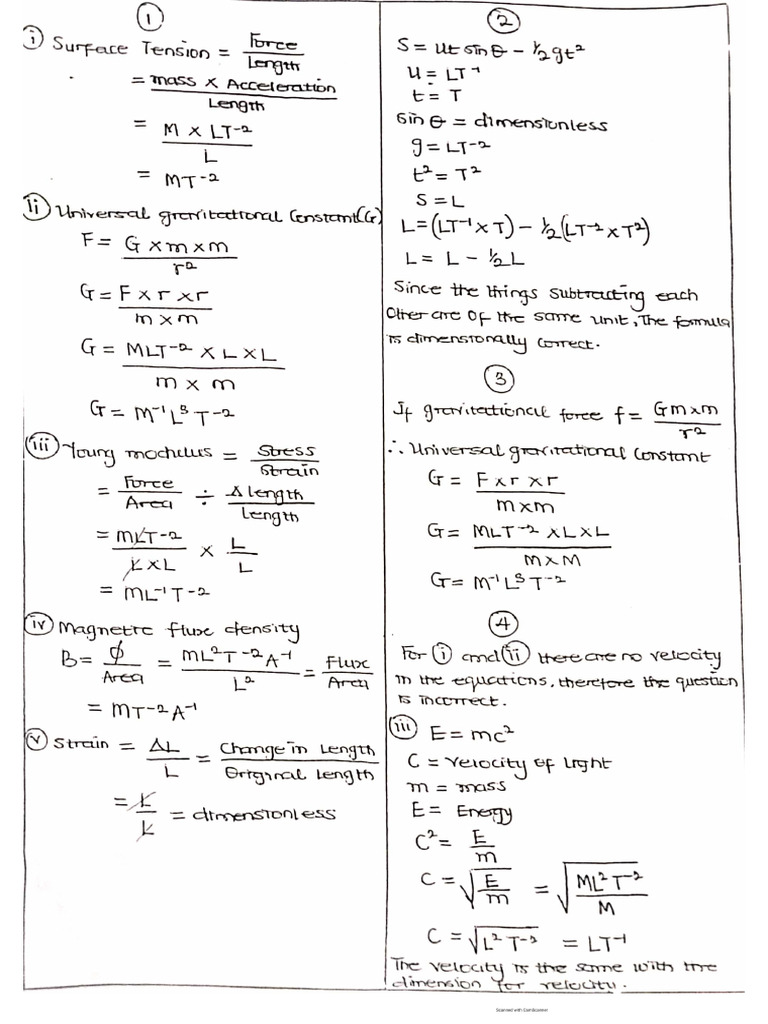 ①
ⓘ Surface Tension = Force/Length
= mass × Acceleration/Length
= M × LT⁻²/L
= MT⁻²
ii Universal gravitational Constant(G)
F = G × m × m/r²
G = F × r × r/m × m
G = MLT⁻² × L × L/m × m
G = M⁻¹L³T⁻²
iii Young modulus = Stress/Strain
= Force/Area ÷ Δlength/Length
= MLT⁻²/L×L × L/L
= ML⁻¹T⁻²
iv Magnetic flux density
B = φ/Area = ML²T⁻²A⁻¹/L² = Flux/Area
= MT⁻²A⁻¹
v Strain = ΔL/L = Change in Length/Original Length
= L/L = dimensionless
②
S = Ut sin θ - ½gt²
U = LT⁻¹
t = T
sin θ = dimensionless
g = LT⁻²
t² = T²
S = L
L = (LT⁻¹ × T) - ½(LT⁻² × T²)
L = L - ½L
Since the things subtracting each
other are of the same unit, The formula
is dimensionally correct.
③
If gravitational force f = Gm×m/r²
∴ Universal gravitational constant
G = F × r × r/m×m
G = MLT⁻² × L × L/M×M
G = M⁻¹L³T⁻²
④
For ⓘ and ii there are no velocity
in the equations, therefore the question
is incorrect.
iii E = mc²
C = velocity of light
m = mass
E = Energy
C² = E/m
C = √E/m = √ML²T⁻²/M
C = √L²T⁻² = LT⁻¹
The velocity is the same with the
dimension for velocity.
Scanned with CamScanner